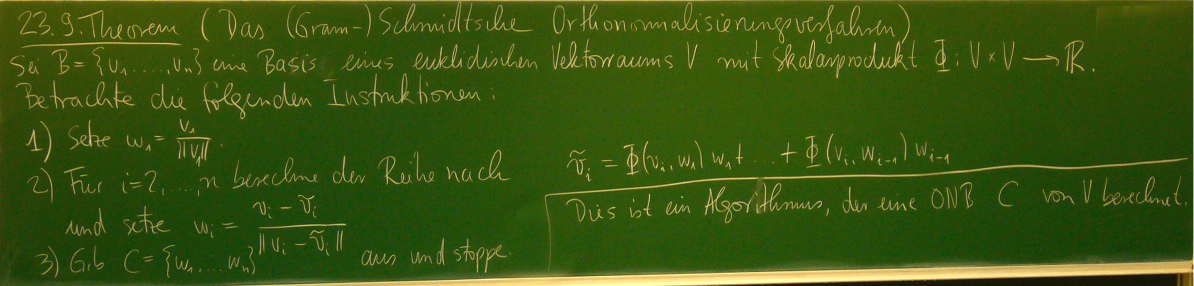 23.9. Theorem (Das (Gram-) Schmidtsche Orthonormalisierungsverfahren)
Sei B = {v₁, ..., vₙ} eine Basis eines euklidischen Vektorraums V mit Skalarprodukt Φ: V × V → ℝ.
Betrachte die folgenden Instruktionen:
1) Setze w₁ = v₁ / ||v₁||.
2) Für i=2, ..., n berechne der Reihe nach ṽᵢ = Φ(vᵢ, w₁) w₁ + ... + Φ(vᵢ, wᵢ₋₁) wᵢ₋₁
und setze wᵢ = (vᵢ − ṽᵢ) / ||vᵢ − ṽᵢ||
3) Gib C = {w₁, ... wₙ} aus und stoppe.
Dies ist ein Algorithmus, der eine ONB C von V berechnet.